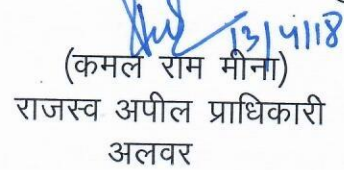 13/4/18
(कमल राम मीना)
राजस्व अपील प्राधिकारी
अलवर